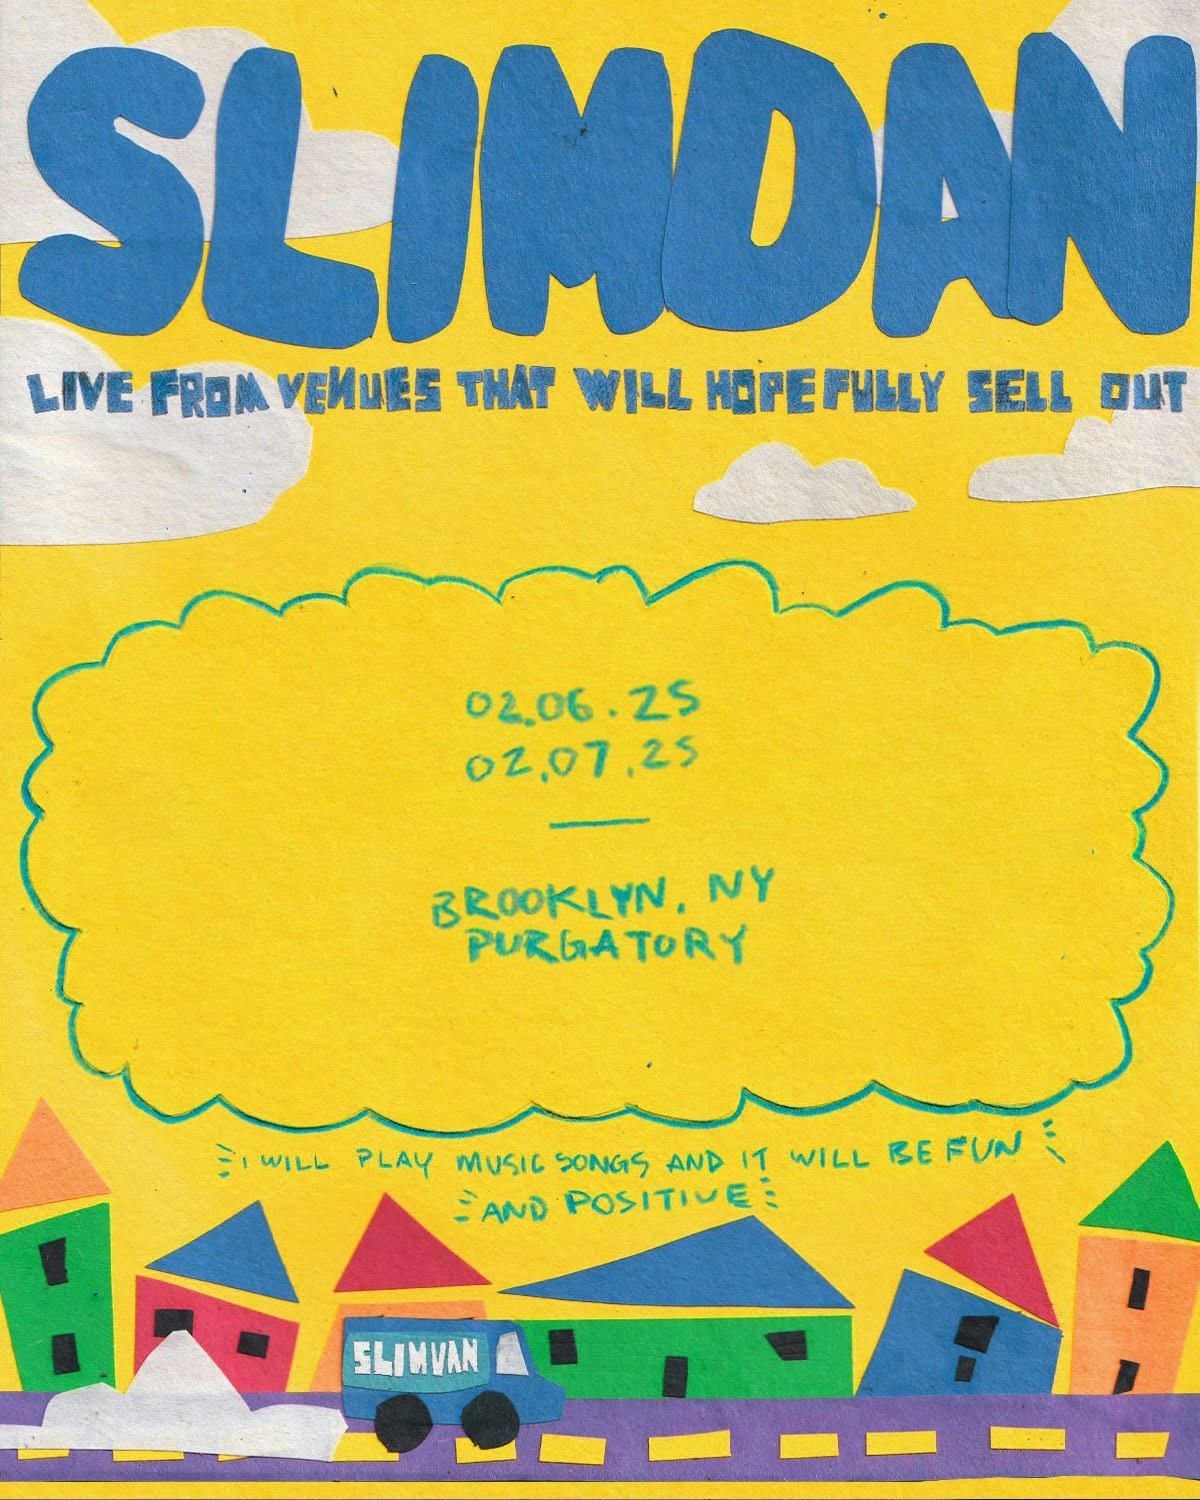 SLIMDAN
LIVE FROM VENUES THAT WILL HOPEFULLY SELL OUT
02.06.25
02.07.25
BROOKLYN, NY
PURGATORY
I WILL PLAY MUSIC SONGS AND IT WILL BE FUN
AND POSITIVE
SLIMVAN